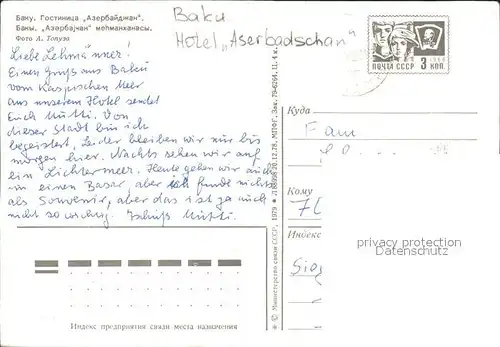 Баку. Гостиница „Азербайджан“.
Бакы. „Азербајҹан“ меһманханасы.
Фото А. Топуза
Baku
Hotel „Aserbadschan“
ПОЧТА СССР 3 КОП.
Liebe Lehmänner!
Einen Gruß aus Baku
vom Kaspischen Meer
aus unserem Hotel sendet
Euch Mutti. Von
dieser Stadt bin ich
begeistert, Leider bleiben wir nur bis
morgen hier. Nachts sehen wir auf
ein Lichtermeer. Heute gehen wir auch
in einen Basar, aber ich finde nichts
als Souvenir, aber das ist ja auch
nicht so wichtig. Tschüß Mutti.
Индекс предприятия связи места назначения
© Министерство связи СССР, 1979
Л 88998 20.12.78. МПФГ. Зак. 79-6264. Ц. 4 к.
Куда
Fam
Кому
Индекс
privacy protection
watermark